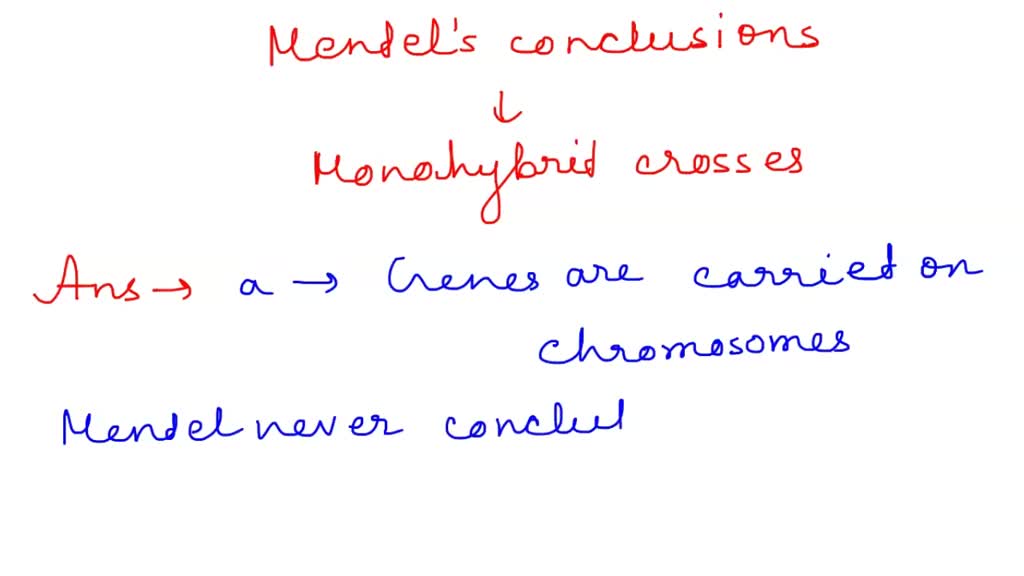 Mendel's conclusions
↓
Monohybrid crosses
Ans → a → Genes are carried on
chromosomes
Mendel never conclud